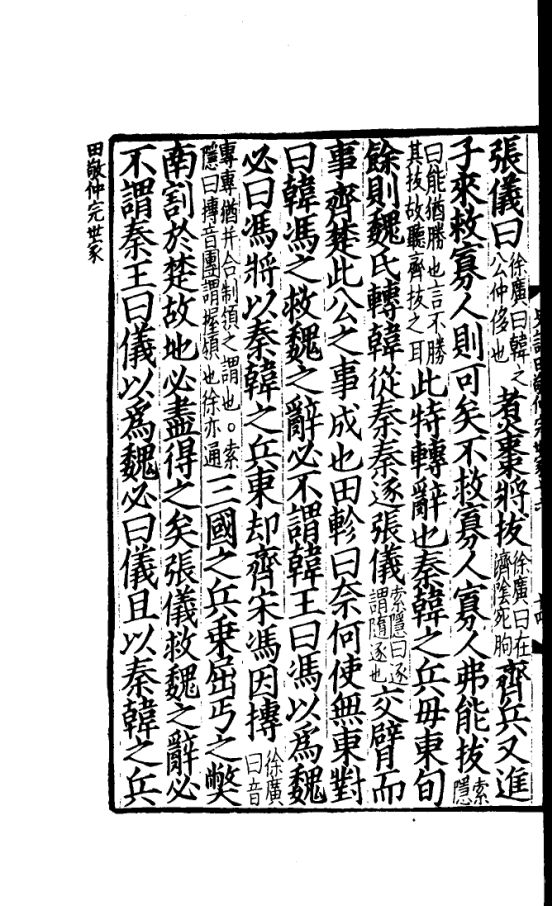 張儀曰徐廣曰韓之公仲侈也煮棗將拔徐廣曰在濟陰死朐齊兵又進
子來救寡人則可矣不救寡人寡人弗能拔索隱
曰能猶勝也言不勝其拔故聽齊拔之耳此特轉辭也秦韓之兵毋東旬
餘則魏氏轉韓從秦秦逐張儀索隱曰逐謂隨逐也交臂而
事齊楚此公之事成也田軫曰奈何使無東對
曰韓馮之救魏之辭必不謂韓王曰馮以爲魏
必曰馮將以秦韓之兵東却齊宋馮因摶徐廣曰音
專專猶并合制領之謂也。索隱曰摶音團謂握領也徐亦通三國之兵乘屈丐之獘
南割於楚故地必盡得之矣張儀救魏之辭必
不謂秦王曰儀以爲魏必曰儀且以秦韓之兵
田敬仲完世家